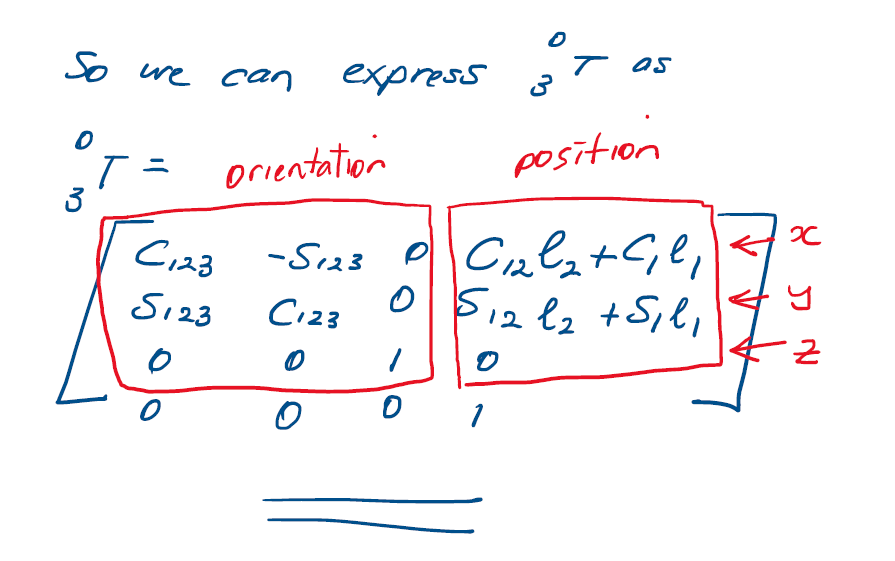 So we can express ⁰₃T as
⁰₃T =
orientation position
C₁₂₃ -S₁₂₃ 0 C₁₂l₂+C₁l₁ ← x
S₁₂₃ C₁₂₃ 0 S₁₂l₂+S₁l₁ ← y
0 0 1 0 ← z
0 0 0 1